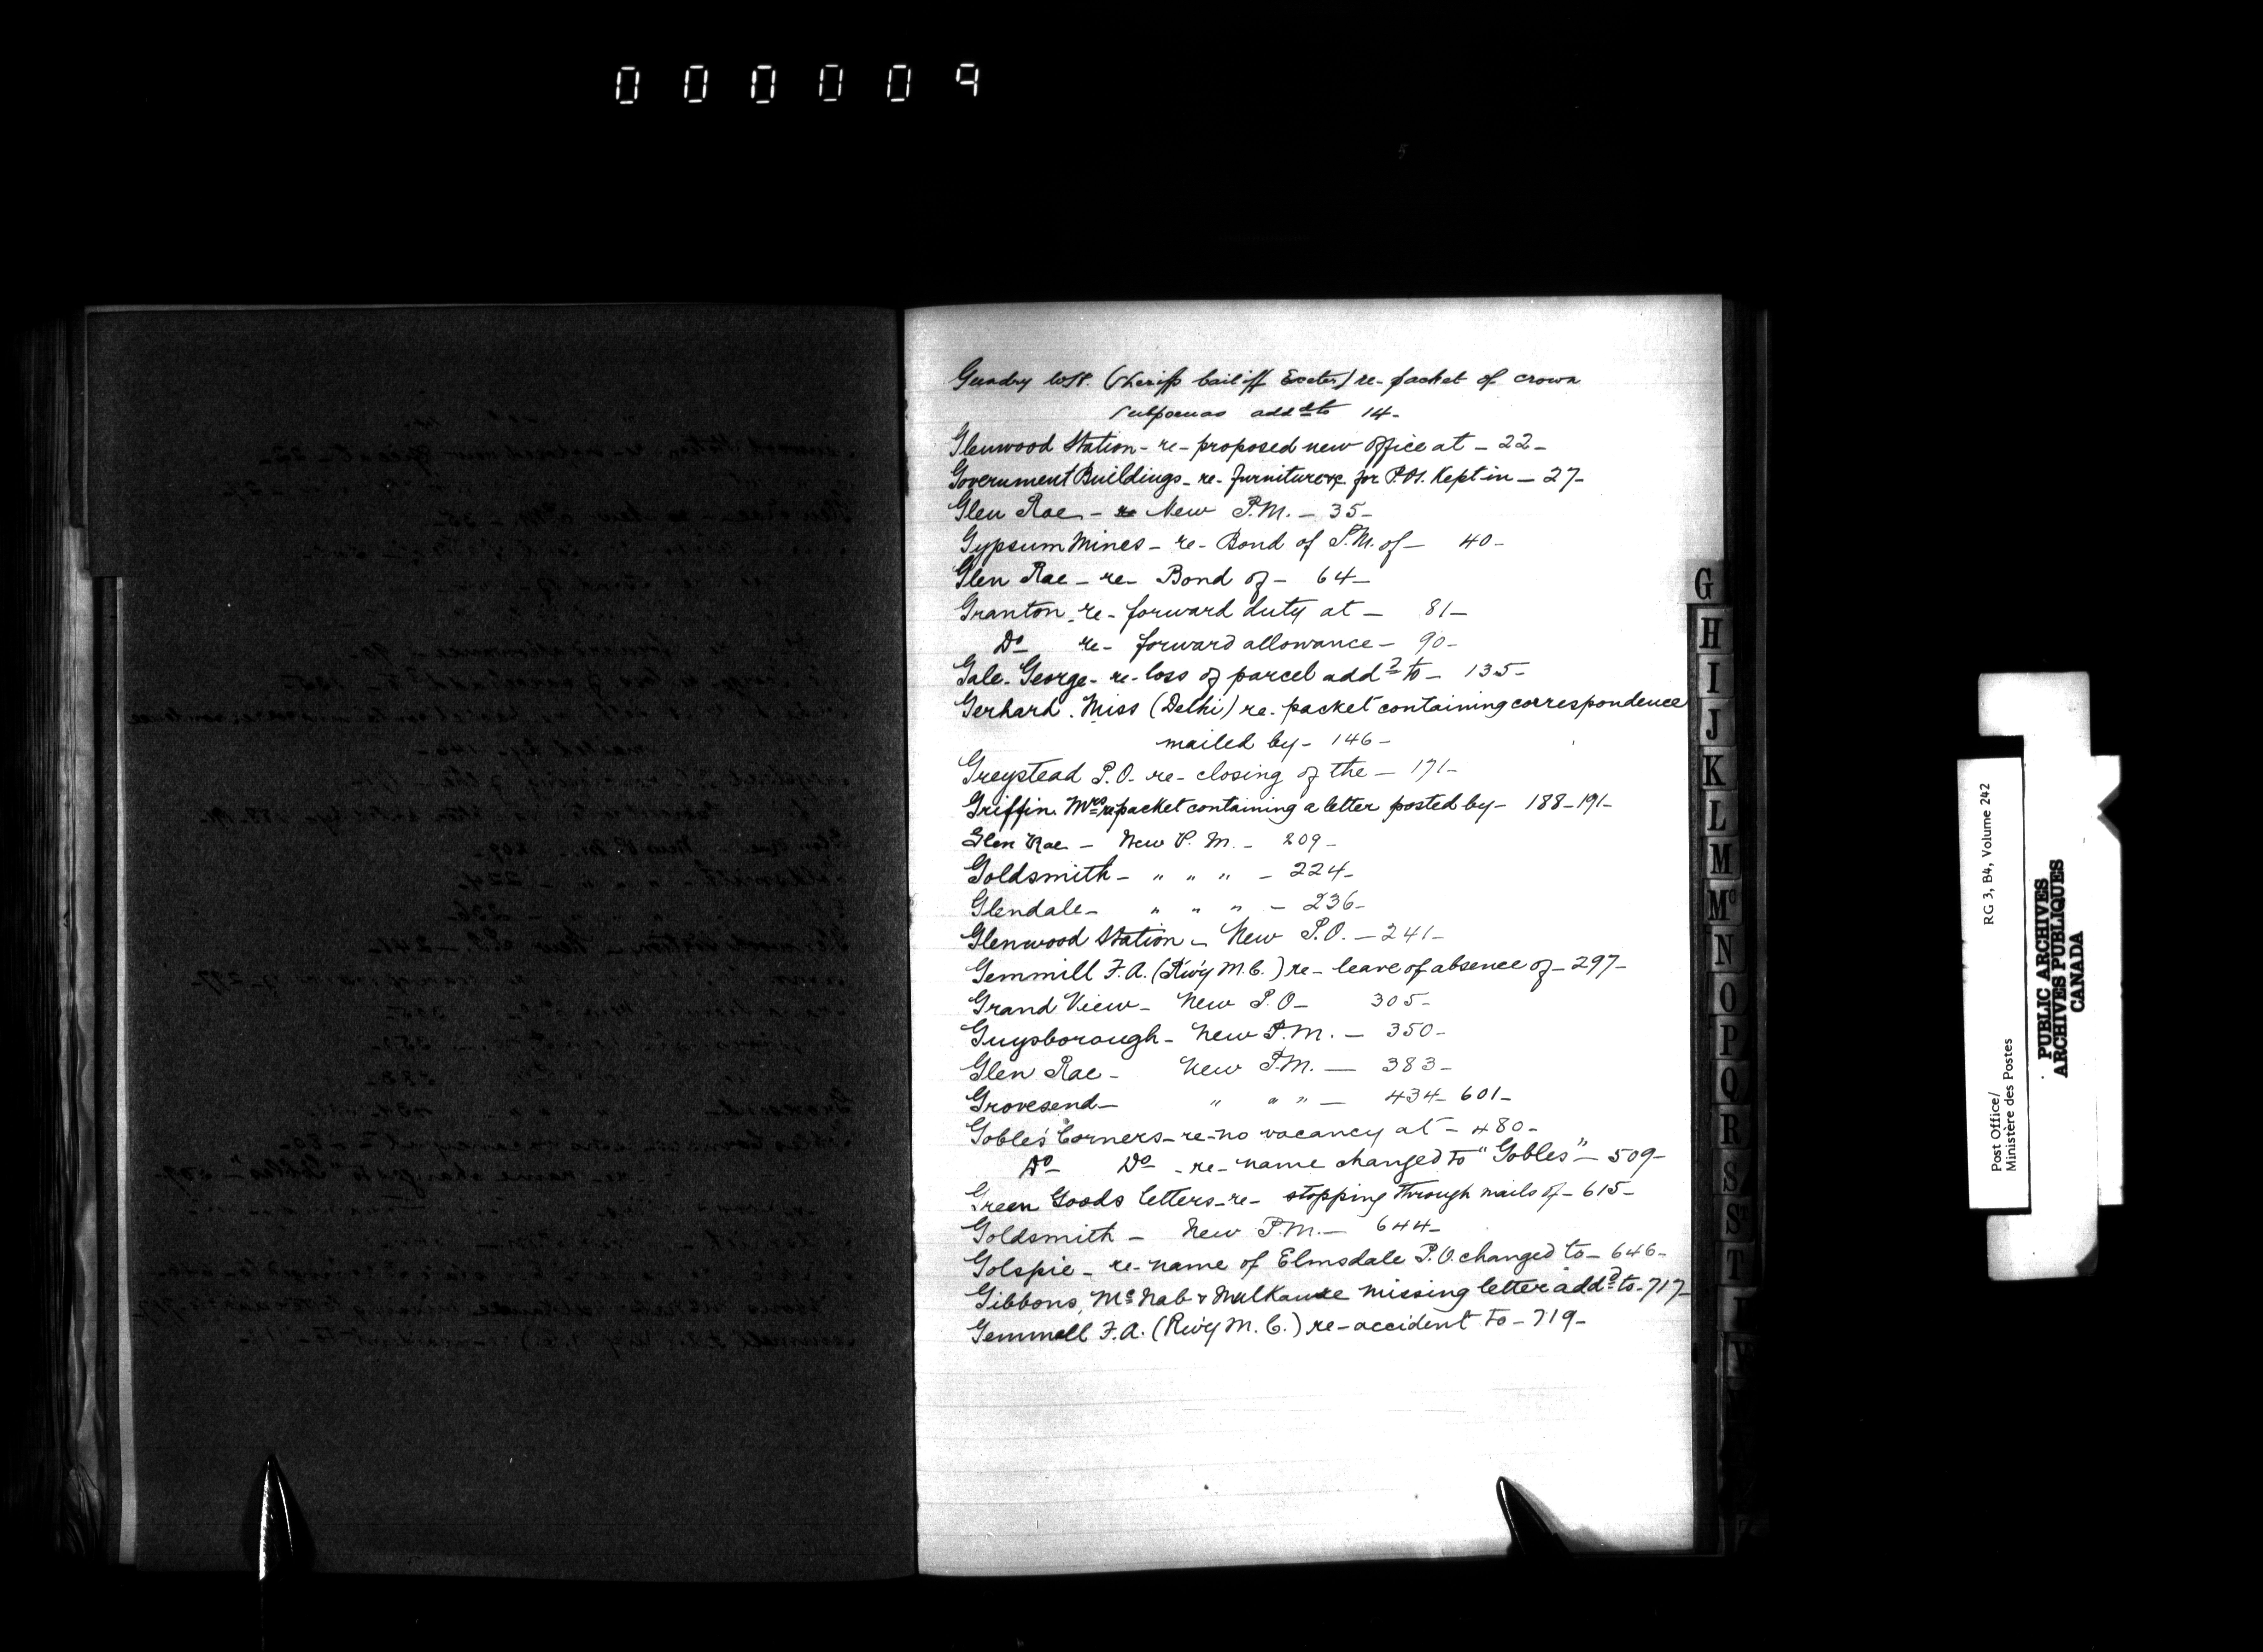 000009
Gundry W.H. (Sheriffs bailiff Exeter) re- packet of crown
subpoenas addd to 14-
Glenwood Station- re- proposed new Office at - 22-
Government Buildings- re- furniture &c for P.O. Kept in - 27-
Glen Rae - re New P.M. - 35-
Gypsum Mines - re- Bond of P.M. of - 40-
Glen Rae - re- Bond of - 64-
Granton, re- forward duty at - 81-
Do re- forward allowance - 90-
Gale. George- re- loss of parcel addd to - 135-
Gerhard. Miss (Delhi) re- packet containing correspondence
mailed by - 146-
Greystead P.O. re- closing of the - 171-
Griffin. Mrs re packet containing a letter posted by - 188-191-
Glen Rae - New P.M. - 209-
Goldsmith- " " " - 224-
Glendale- " " " - 236-
Glenwood Station - New P.O. - 241-
Gemmill F.A. (Rwy M.C.) re- leave of absence of - 297-
Grand View - New P.O - 305-
Guysborough- New P.M. - 350-
Glen Rae - New P.M. - 383-
Grovesend- " " " - 434-601-
Gobles Corners- re- no vacancy at - 480-
Do Do - re- name changed to "Gobles" - 509-
Green Goods letters- re- stopping through mails of - 615-
Goldsmith - New P.M. - 644-
Golspie - re- name of Elmsdale P.O. changed to - 646-
Gibbons, McNab & Mulkause missing letter addd to - 717-
Gemmell F.A. (Rwy M.C.) re- accident to - 719-
G
H
I
J
K
L
M
Mc
N
O
P
Q
R
S
St
T
RG 3, B4, Volume 242
Post Office/
Ministère des Postes
PUBLIC ARCHIVES
ARCHIVES PUBLIQUES
CANADA